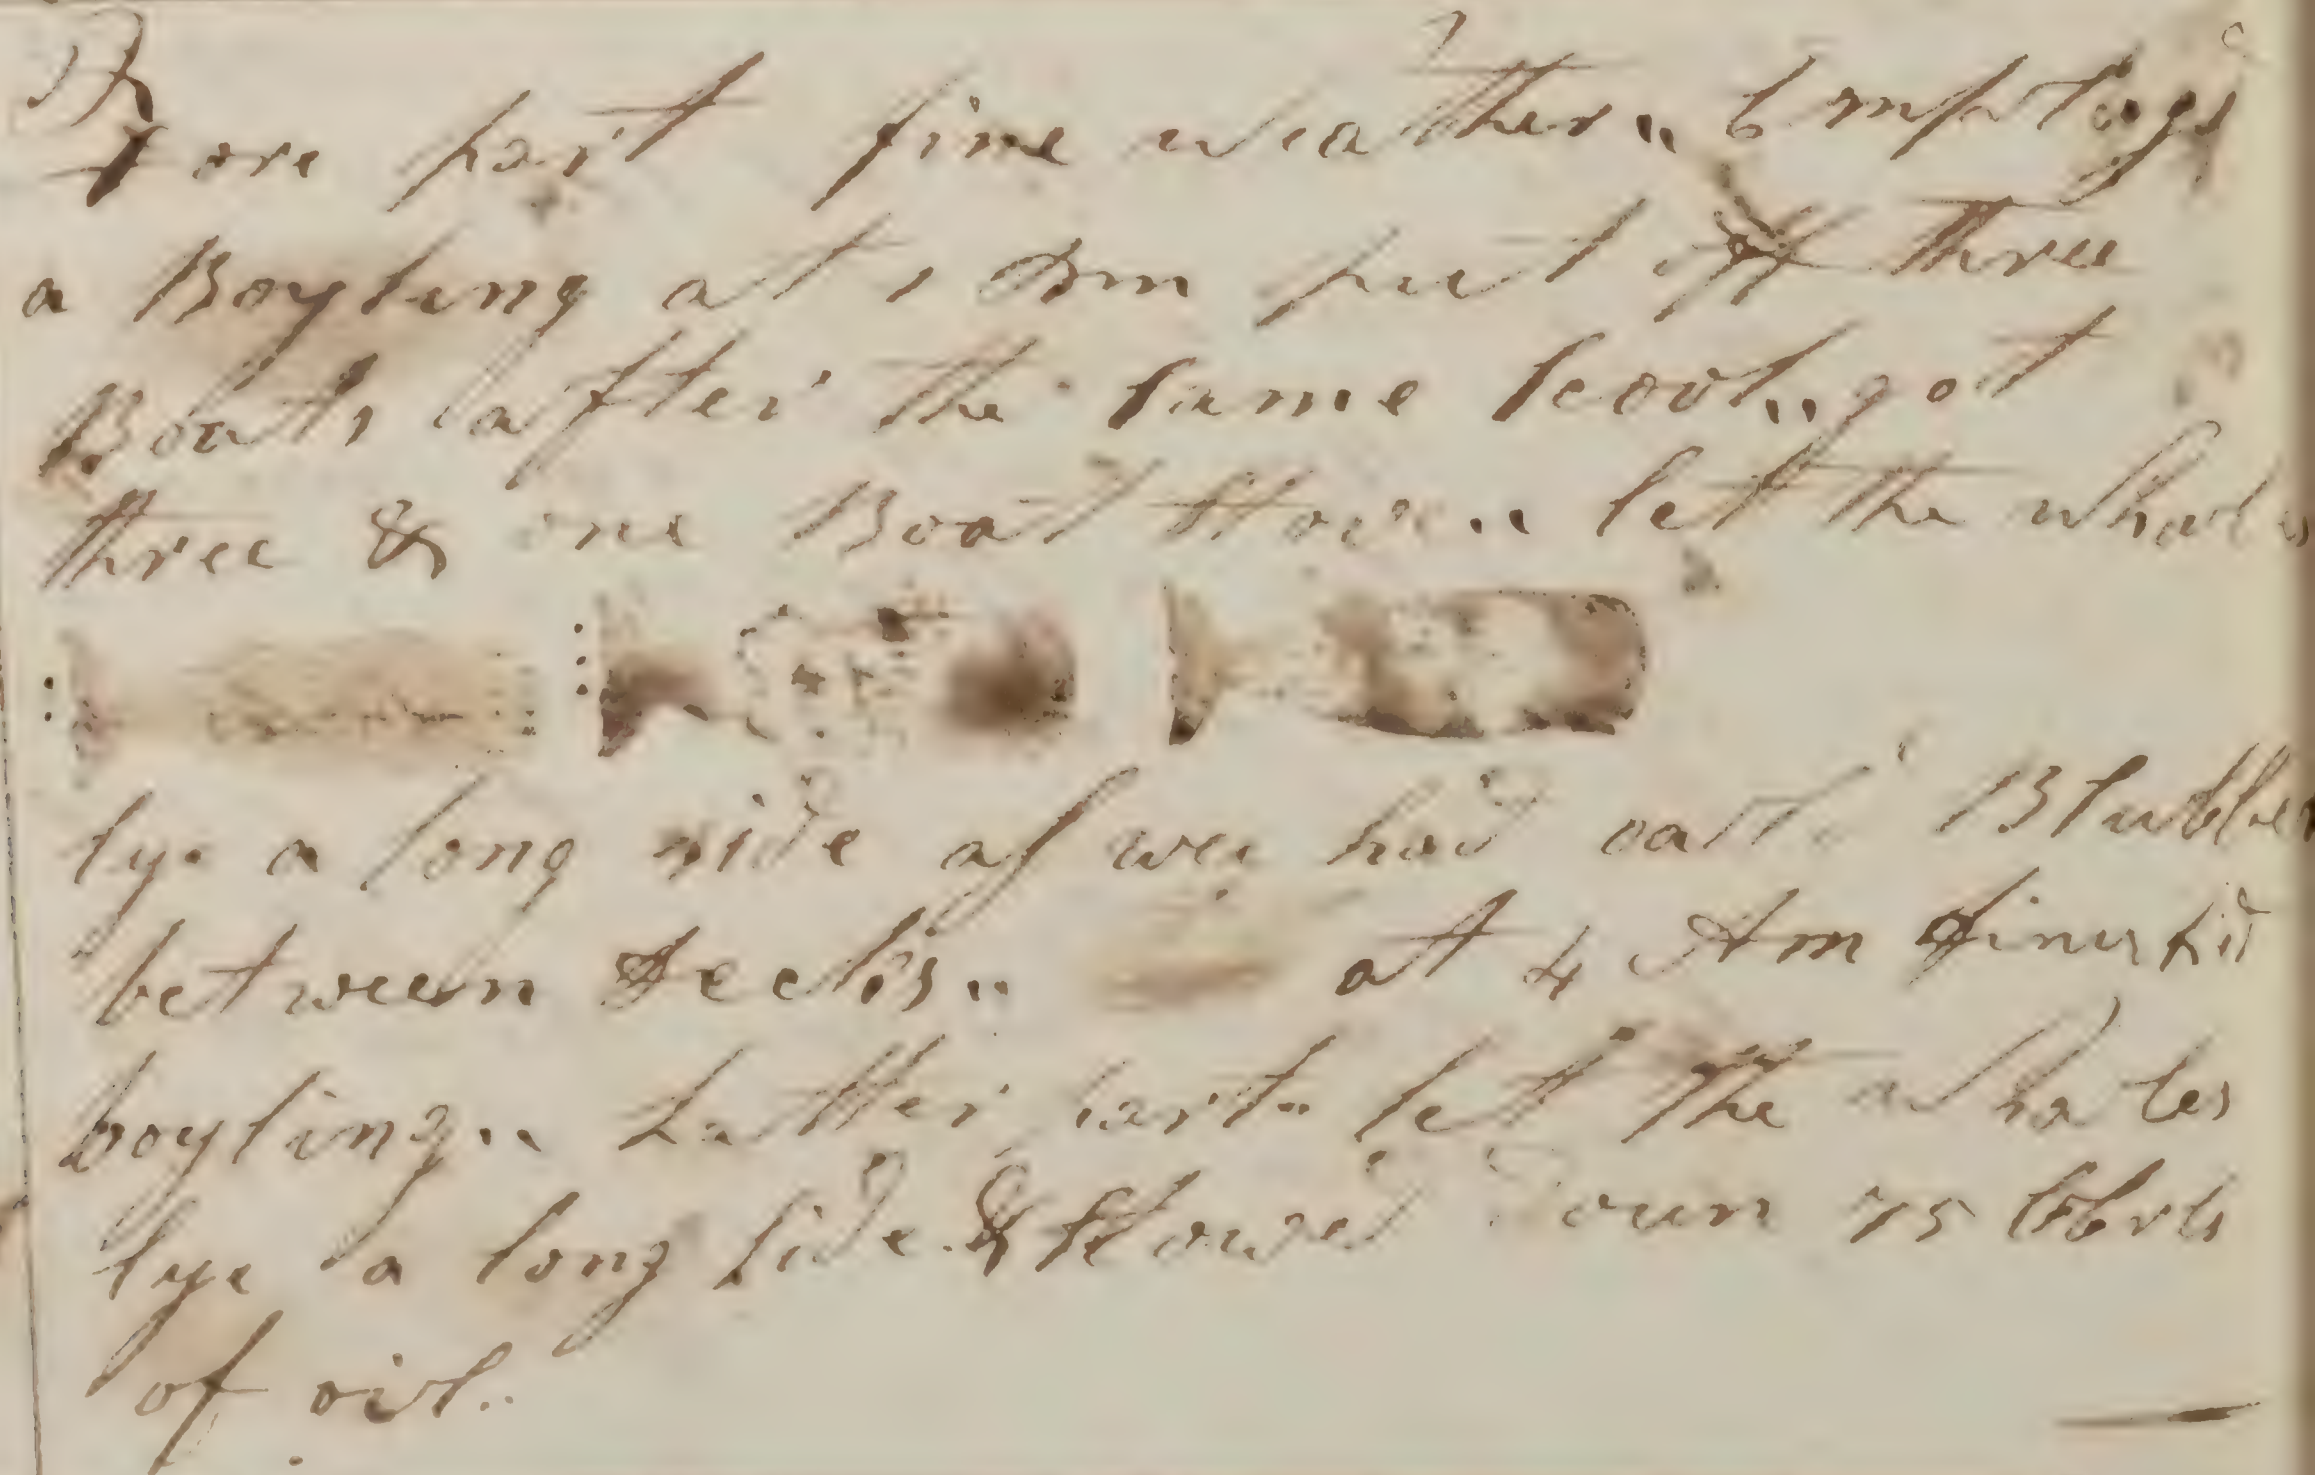 Fore part fine weather,, Employd
a Boyling at 1 Pm put off three
Boats after the same scool,, got
three & one Boat stove,, let the whales
lye a long side as we had oasn Blubber
between decks,, at 4 Am finishd
boyling,, Latter part,, let the whales
lye a long side & stowed down 75 bbrls
of oil..